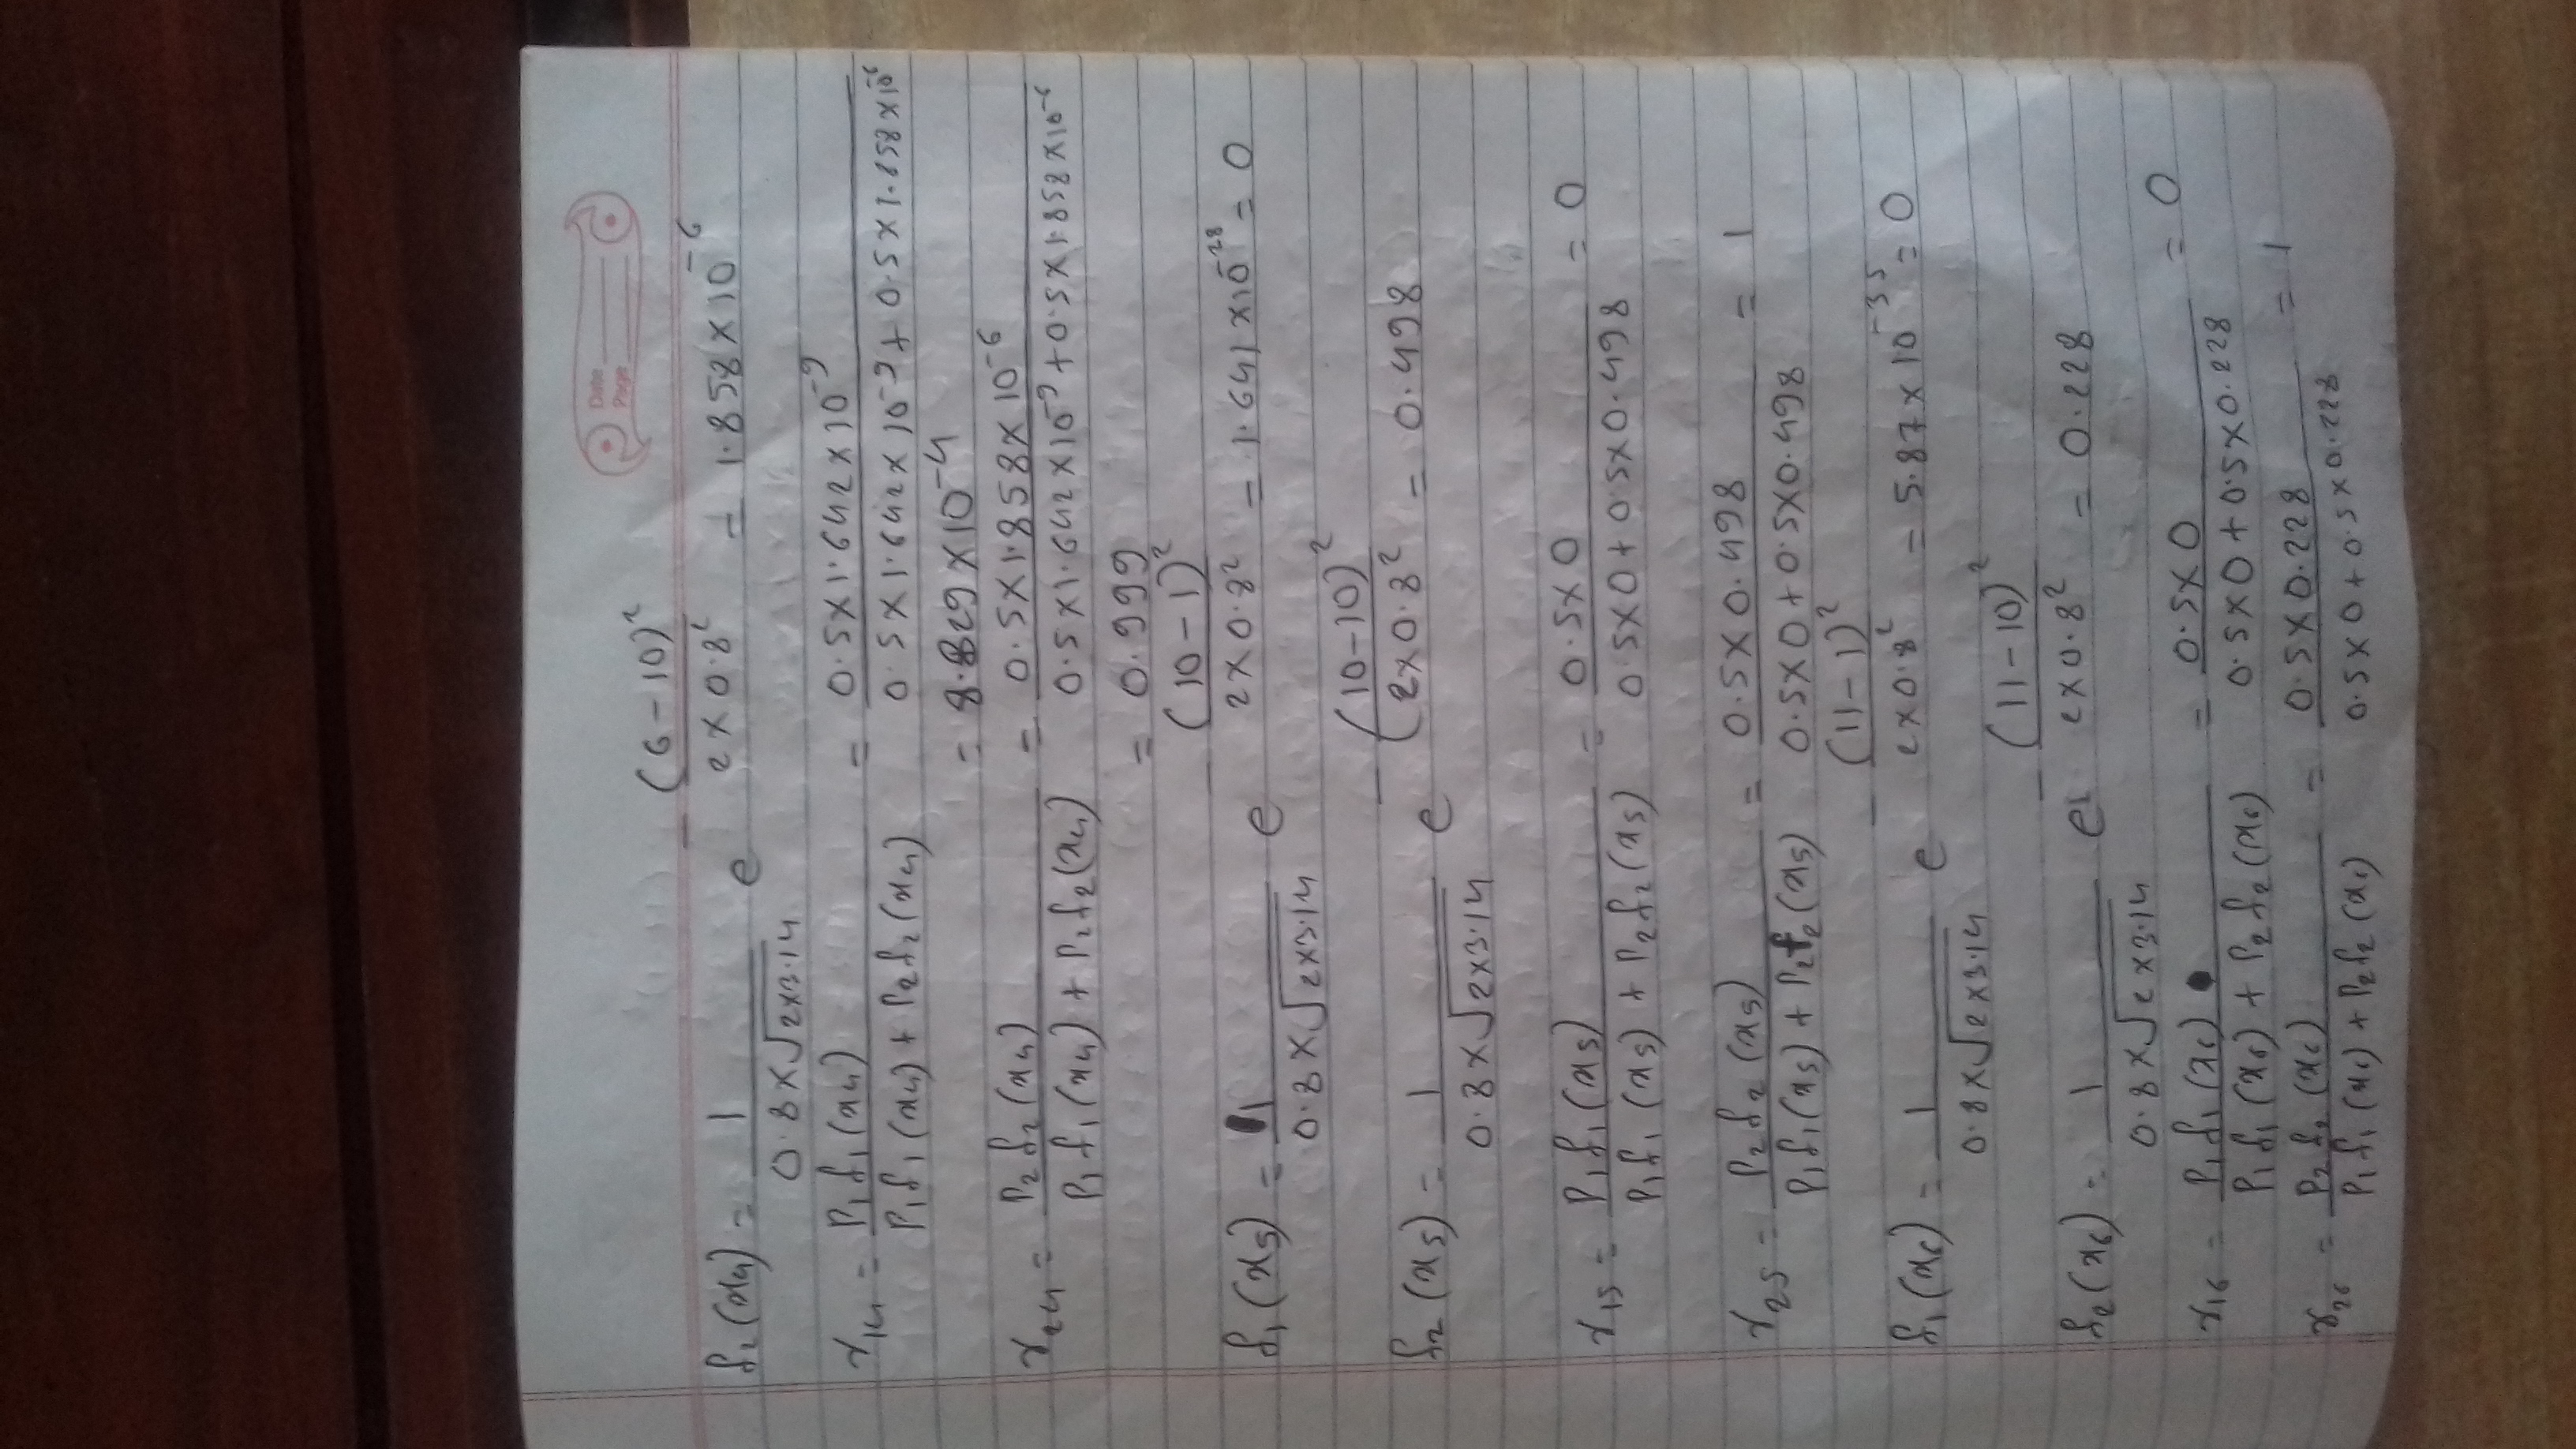 Date
Page
f₂(x₄) = 1 / (0.8×√(2×3.14)) e^(-(6-10)² / (2×0.8²)) = 1.858×10⁻⁶
r₁₄ = P₁f₁(x₄) / (P₁f₁(x₄) + P₂f₂(x₄)) = 0.5×1.642×10⁻⁹ / (0.5×1.642×10⁻⁹ + 0.5×1.858×10⁻⁶)
= 8.829×10⁻⁴
r₂₄ = P₂f₂(x₄) / (P₁f₁(x₄) + P₂f₂(x₄)) = 0.5×1.858×10⁻⁶ / (0.5×1.642×10⁻⁹ + 0.5×1.858×10⁻⁶)
= 0.999
f₁(x₅) = 1 / (0.8×√(2×3.14)) e^(-(10-1)² / (2×0.8²)) = 1.641×10⁻²⁸ = 0
f₂(x₅) = 1 / (0.8×√(2×3.14)) e^(-(10-10)² / (2×0.8²)) = 0.498
r₁₅ = P₁f₁(x₅) / (P₁f₁(x₅) + P₂f₂(x₅)) = 0.5×0 / (0.5×0 + 0.5×0.498) = 0
r₂₅ = P₂f₂(x₅) / (P₁f₁(x₅) + P₂f₂(x₅)) = 0.5×0.498 / (0.5×0 + 0.5×0.498) = 1
f₁(x₆) = 1 / (0.8×√(2×3.14)) e^(-(11-1)² / (2×0.8²)) = 5.87×10⁻³⁵ = 0
f₂(x₆) = 1 / (0.8×√(2×3.14)) e^(-(11-10)² / (2×0.8²)) = 0.228
r₁₆ = P₁f₁(x₆) / (P₁f₁(x₆) + P₂f₂(x₆)) = 0.5×0 / (0.5×0 + 0.5×0.228) = 0
r₂₆ = P₂f₂(x₆) / (P₁f₁(x₆) + P₂f₂(x₆)) = 0.5×0.228 / (0.5×0 + 0.5×0.228) = 1